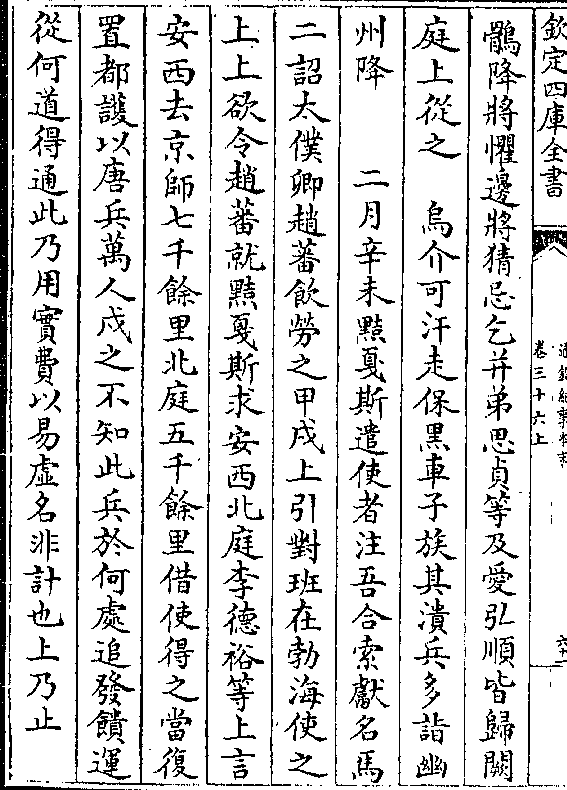 欽定四庫全書
卷三十六上
鶻降將懼邊將猜忌乞并弟思貞等及愛弘順皆歸闕
庭上從之　烏介可汗走保黑車子族其潰兵多詣幽
州降　　二月辛未黠戛斯遣使者注吾合索獻名馬
二詔太僕卿趙蕃飲勞之甲戌上引對班在勃海使之
上上欲令趙蕃就黠戛斯求安西北庭李德裕等上言
安西去京師七千餘里北庭五千餘里借使得之當復
置都護以唐兵萬人戍之不知此兵於何處追發饋運
從何道得通此乃用實費以易虛名非計也上乃止